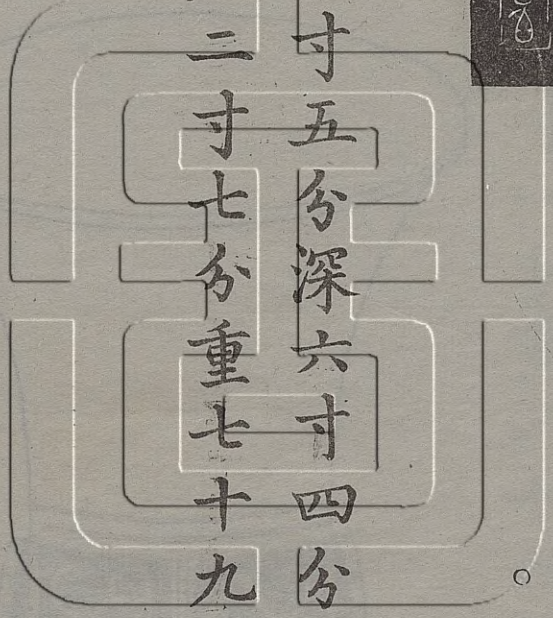 寸五分深六寸四分
二寸七分重七十九